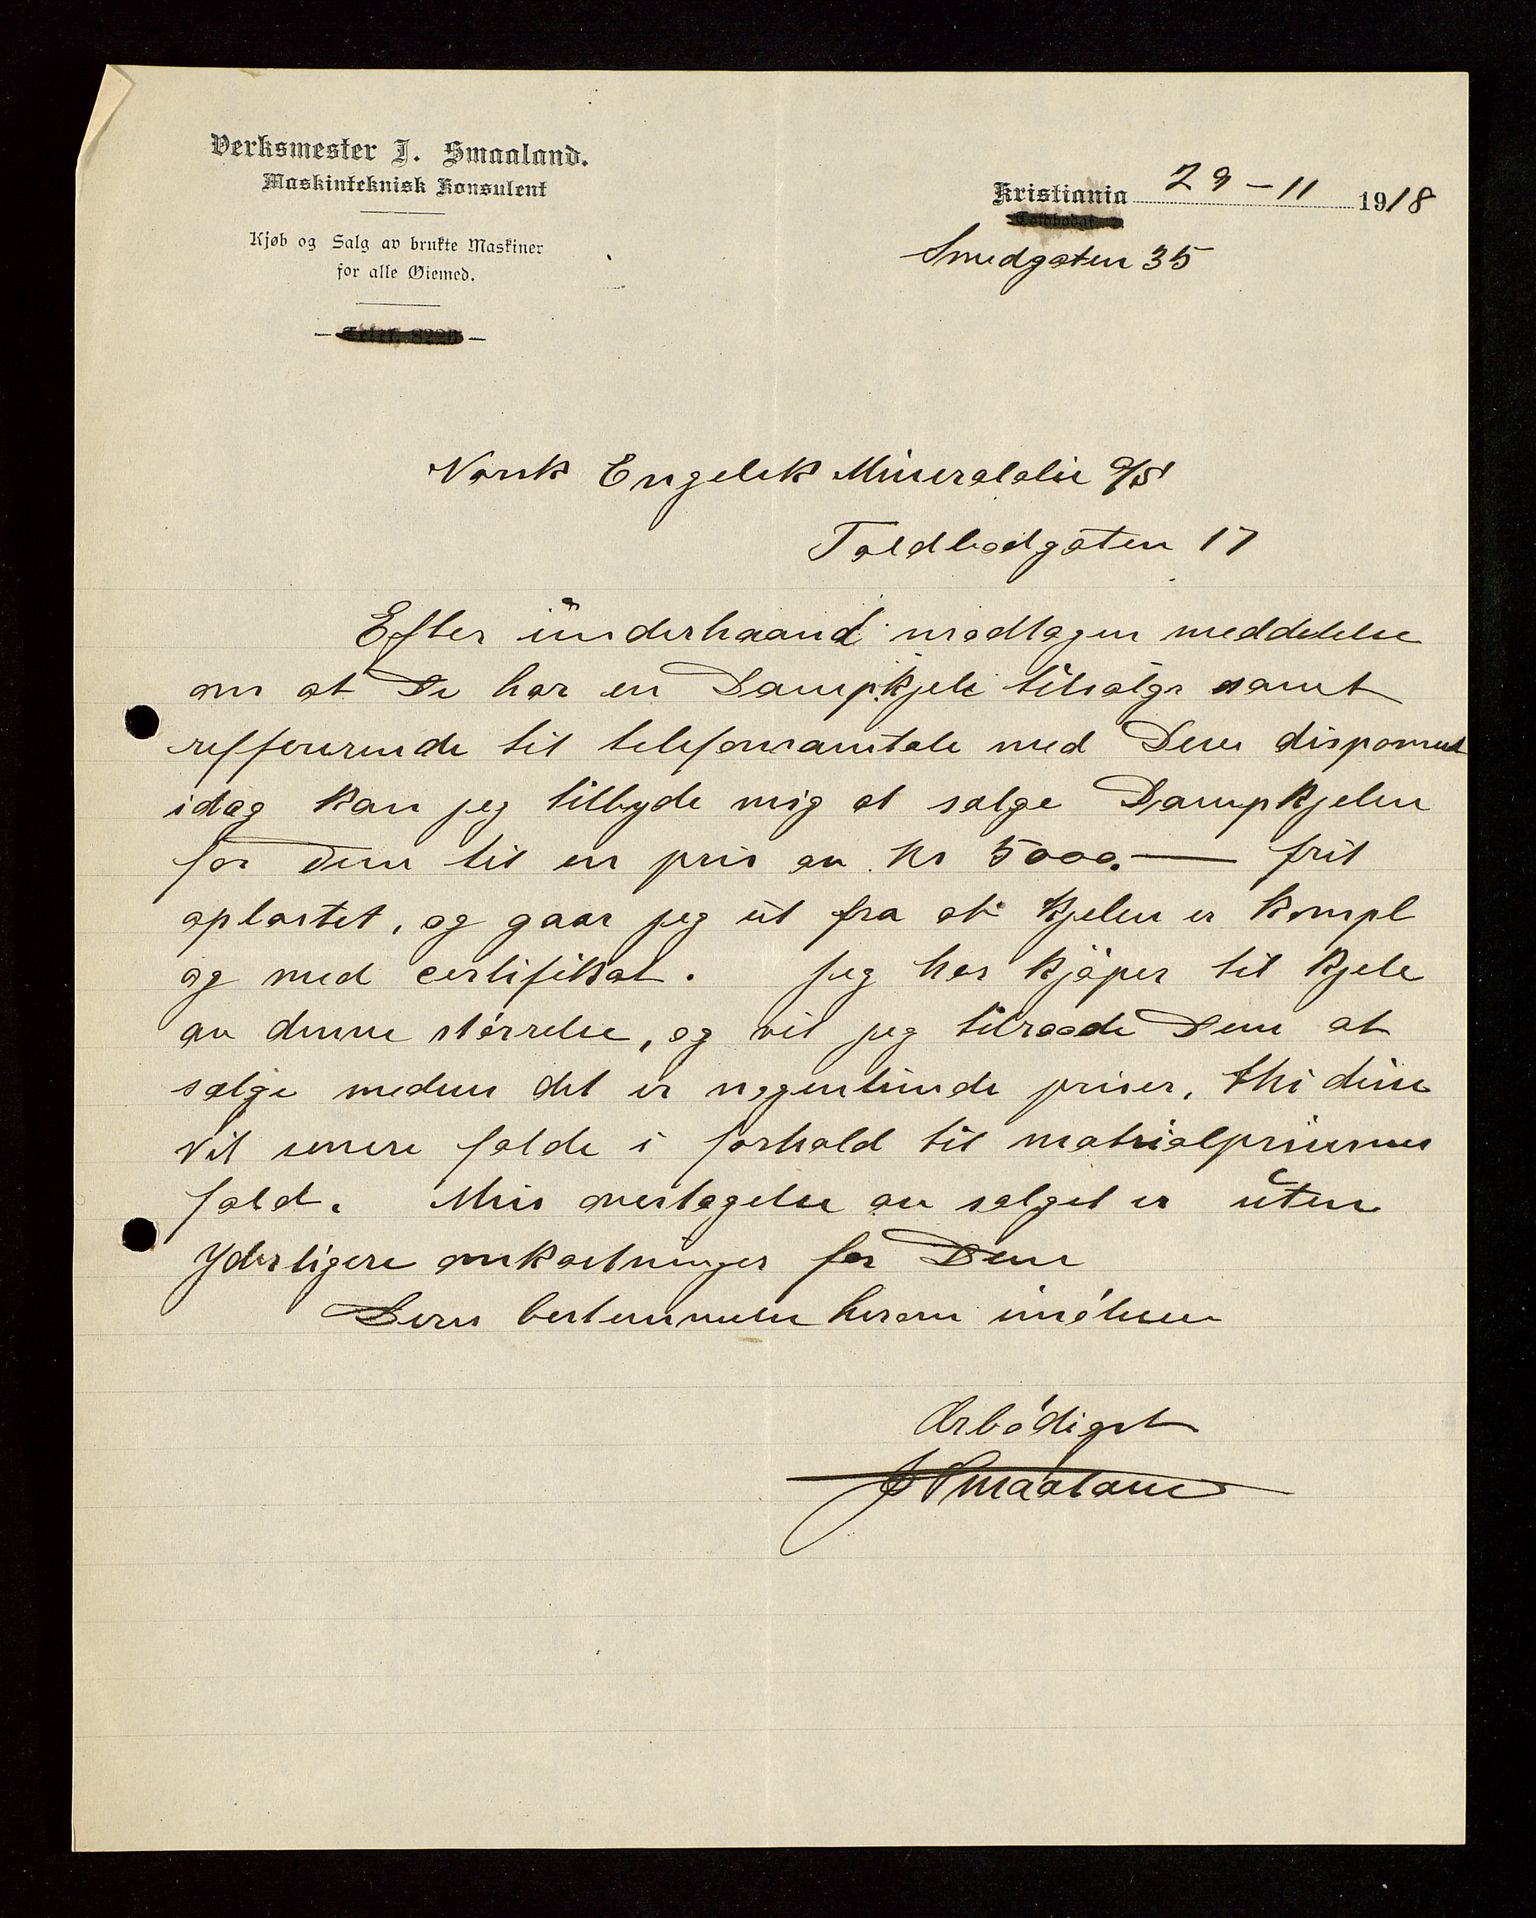 Verksmester J. Smaaland.
Maskinteknisk Konsulent
Kjøb og Salg av brukte Maskiner
for alle Øiemed.
Kristiania 29-11 1918
Smedgaten 35
Norsk Engelsk Mineralolie A/S
Toldbodgaten 17
Efter ünderhaand modtagen meddelelse
om at De har en Dampkjele tilsalgs samt
reffererende til telefonsamtale med Deres disponent
idag kan jeg tilbyde mig at sælge Dampkjelen
for Dem til en pris av Kr 5000.— frit
oplastet, og gaar jeg üt fra at kjelen er kompl
og med certifikat. Jeg har kjøper til kjele
av denne størrelse, og vil jeg tilraade Dem at
sælge medens det er nogenlunde priser, thi disse
vil senere falde i forhold til matrialprisernes
fald. Min overtagelse av salget er üten
yderligere omkostninger for Dem
Deres bestemmelse herom imøtesees
Ærbødigst
J Smaaland